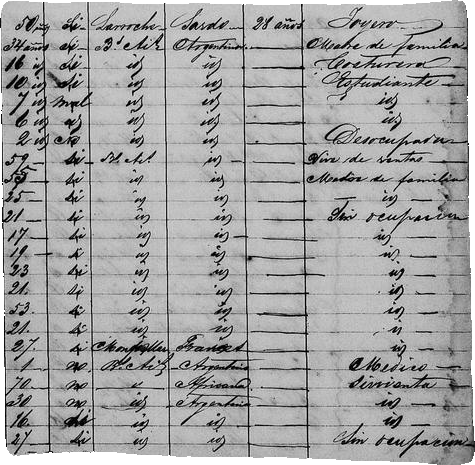 50 añs si Larroche Sardo 28 años Joyero
34 años si Bs Ais Argentina Madre de familia
16 id si id id Costurera
10 id si id id Estudiante
7 id mal id id id
6 id id id id id
2 id no id id Desocupada
59 si Bs As id Vive de rentas
55 si id id Madre de familia
25 si id id id
21 si id id Sin ocupacion
17 si id id id
19 si id id id
23 si id id id
21 si id id id
53 si id id id
21 si id id id
27 si Montpellier Frances id
1 no Bs Ais Argentina Medico
70 no Africana Sirvienta
30 no id Argentina id
16 si id id id
27 si id id Sin ocupacion